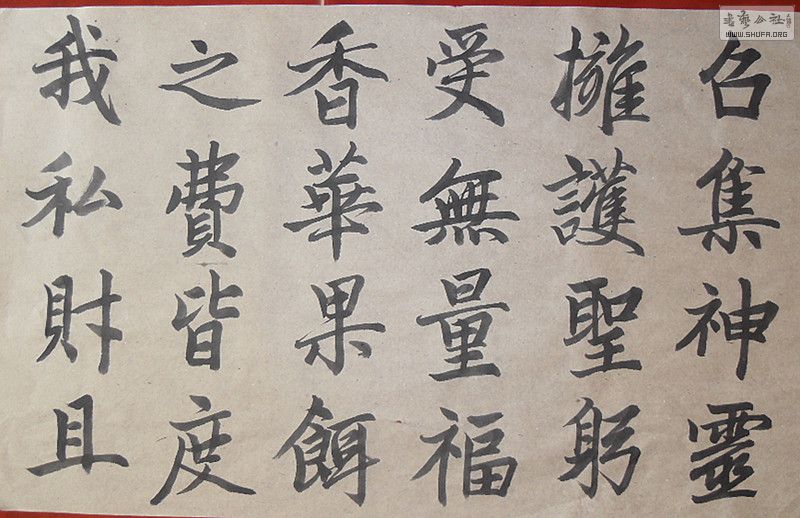 召集神靈
擁護聖躬
受無量福
香華果餌
之費皆度
我私財且
书艺公社
WWW.SHUFA.ORG